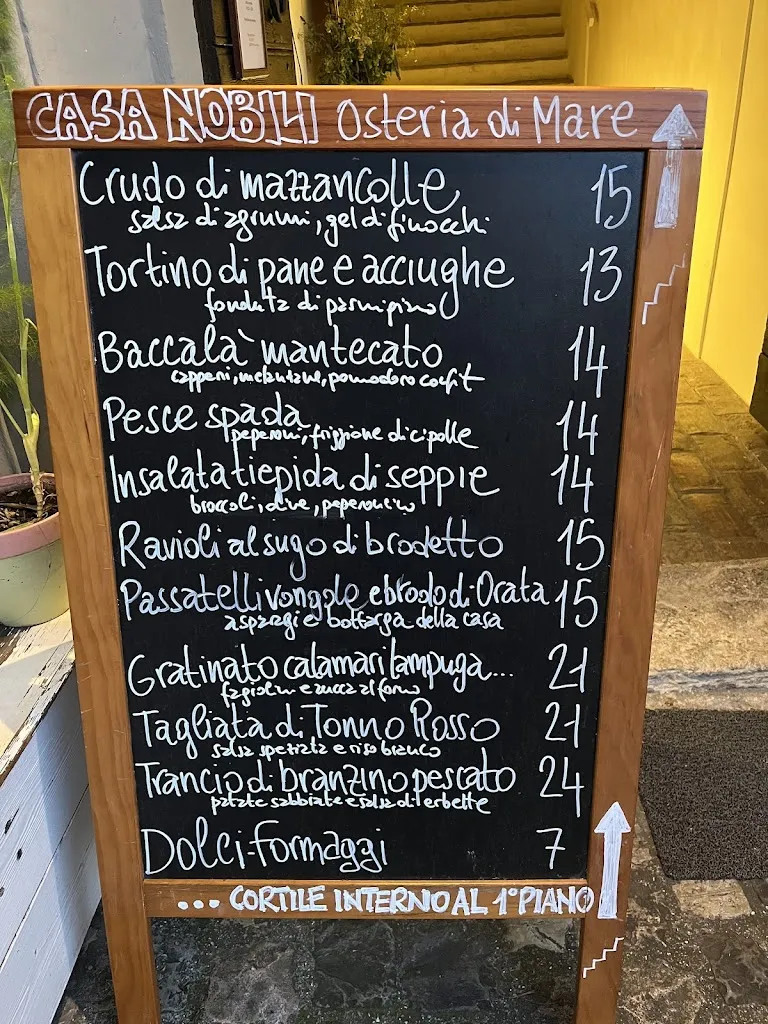 CASA NOBILI Osteria di Mare
Crudo di mazzancolle 15
salsa di agrumi, gel di finocchi
Tortino di pane e acciughe 13
fonduta di parmigiano
Baccalà mantecato 14
capperi, melanzane, pomodoro confit
Pesce spada 14
peperoni, friggione di cipolle
Insalata tiepida di seppie 14
broccoli, olive, peperoncino
Ravioli al sugo di brodetto 15
Passatelli vongole e brodo di Orata 15
asparagi e bottarga della casa
Gratinato calamari lampuga... 21
fagiolini e zucca al forno
Tagliata di Tonno Rosso 21
salsa speziata e riso bianco
Trancio di branzino pescato 24
patate sabbiate e salsa di erbette
Dolci-formaggi 7
... CORTILE INTERNO AL 1° PIANO